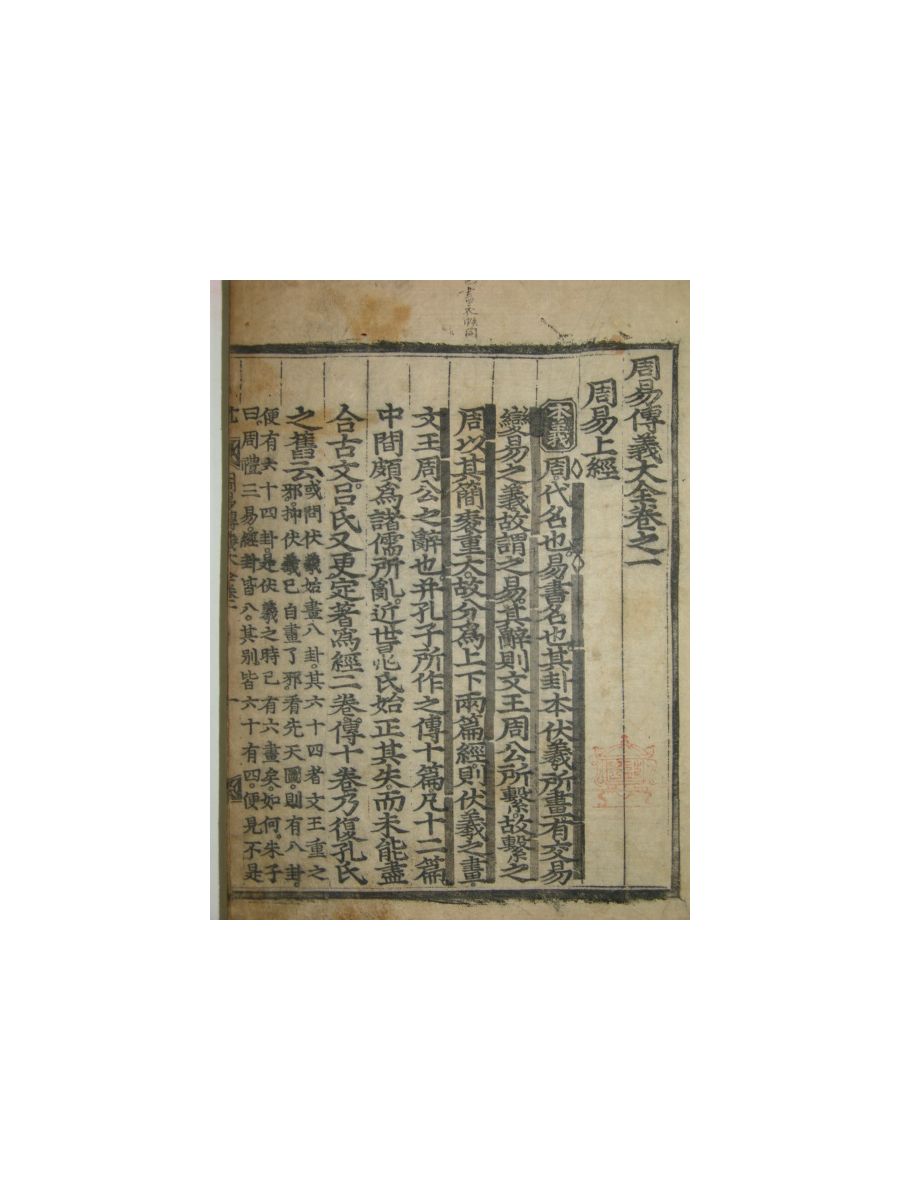 周易傳義大全卷之一
周易上經
本義 周代名也易書名也其卦本伏羲所畫有交易
變易之義故謂之易其辭則文王周公所繫故繫之
周以其簡袠重大故分爲上下兩篇經則伏羲之畫
文王周公之辭也幷孔子所作之傳十篇凡十二篇
中間頗爲諸儒所亂近世晁氏始正其失而未能盡
合古文呂氏又更定著爲經二卷傳十卷乃復孔氏
之舊云
或問伏羲始畫八卦其六十四者文王重之
邪抑伏羲已自畫了邪看先天圖則有八卦
便有六十四卦是伏羲之時已有六畫矣如何朱子
曰周禮三易經卦皆八其別皆六十有四便見不是